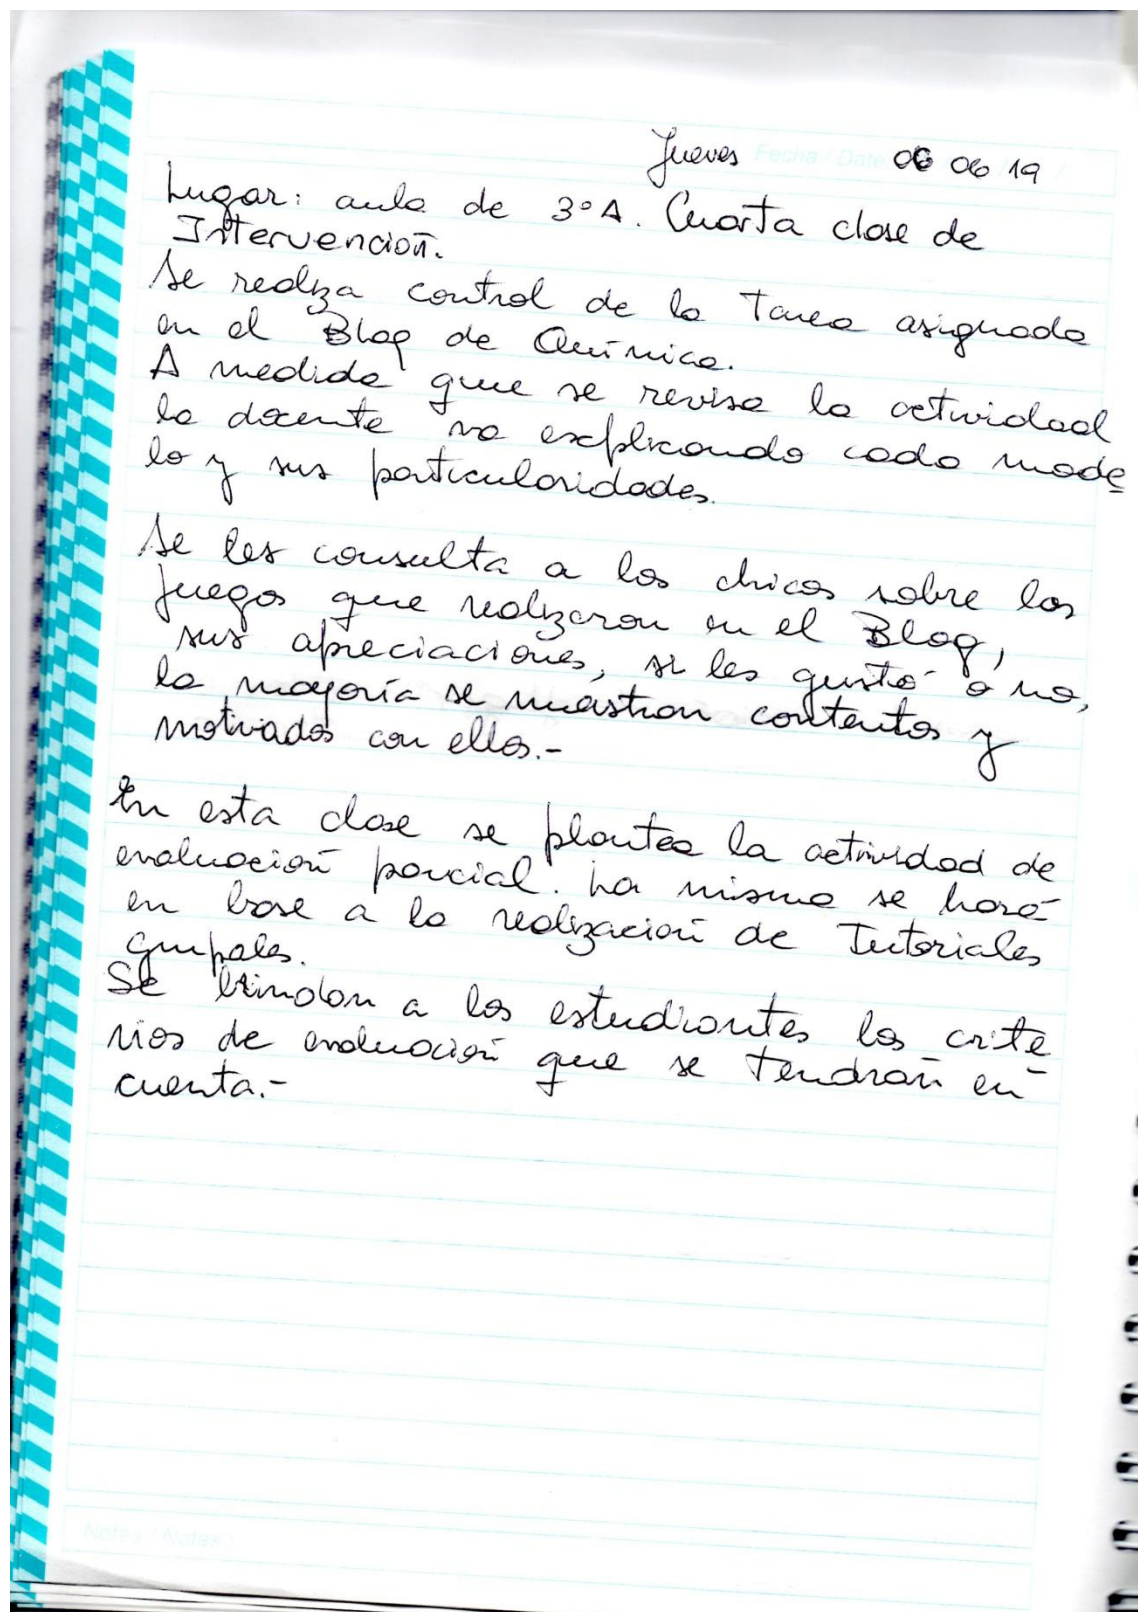 Jueves Fecha / Date 06 06 19
Lugar: aula de 3º A. Cuarta clase de
Intervención.
Se realiza control de la Tarea asignada
en el Blog de Química.
A medida que se revisa la actividad
la docente va explicando cada mode
lo y sus particularidades.
Se les consulta a los chicos sobre los
juegos que realizaron en el Blog,
sus apreciaciones, si les gustó o no,
la mayoría se muestran contentos y
motivados con ellos.-
En esta clase se plantea la actividad de
evaluación parcial. La misma se hará
en base a la realización de Tutoriales
grupales.
Se brindan a los estudiantes los crite
rios de evaluación que se tendrán en
cuenta.-
Notas / Notes: